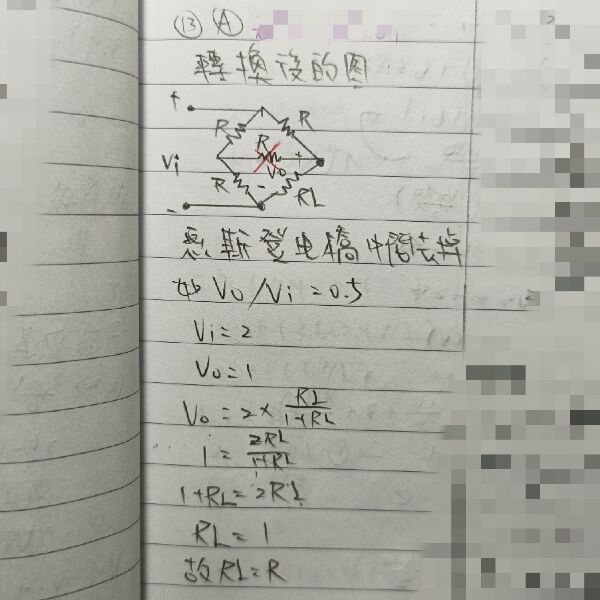 ⑬ Ⓐ
轉換後的图
+ R R
Vi R + Vo
- R - RL
惠斯登电橋中間去掉
如 Vo/Vi = 0.5
Vi = 2
Vo = 1
Vo = 2 × RL/1+RL
1 = 2RL/1+RL
1+RL = 2RL
RL = 1
故 RL = R